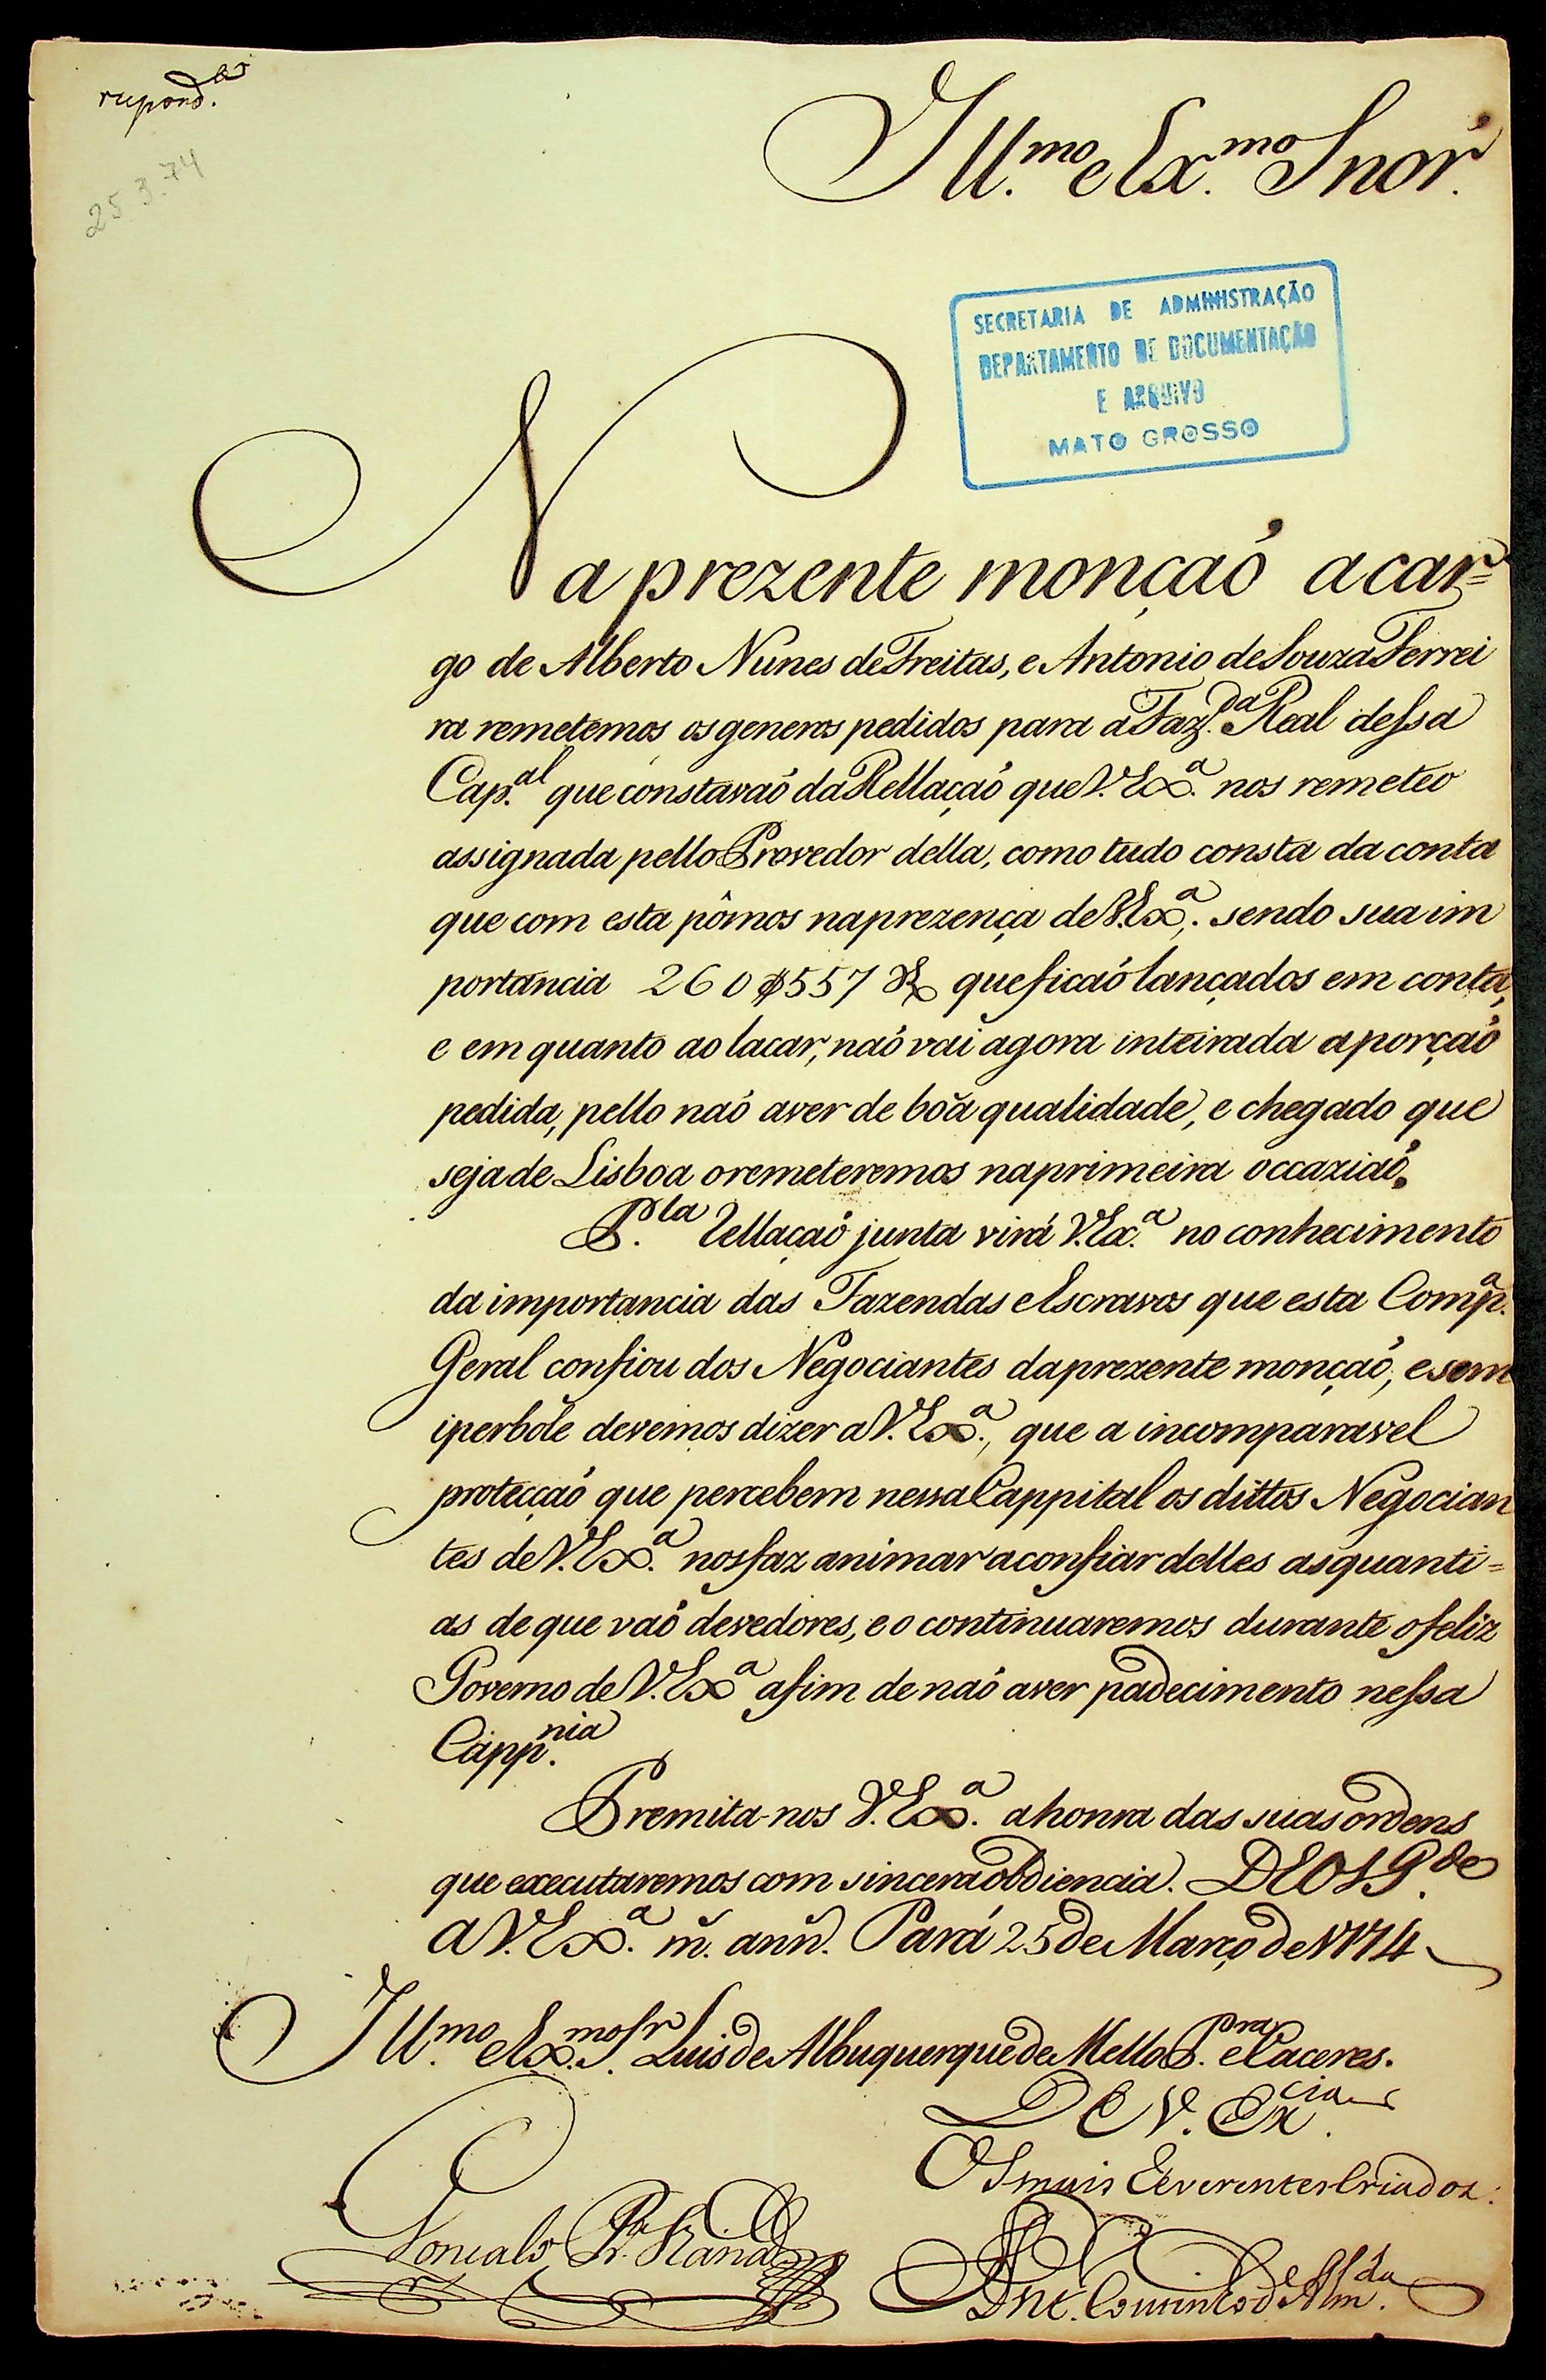 respond.as
25.3.74
Ill.mo e Ex.mo Snór.
SECRETARIA DE ADMINISTRAÇÃO
DEPARTAMENTO DE DOCUMENTAÇÃO
E ARQUIVO
MATO GROSSO
Na prezente monçaó acar=
go de Alberto Nunes de Freitas, e Antonio de Souza Ferrei
ra remetemos os generos pedidos para a Faz.da Real deſsa
Cap.al que constavaó da Rellaçaó que V. Ex.a nos remeteo
assignada pello Provedor della, como tudo consta da conta
que com esta pômos na prezença de V. Ex.a; sendo sua im
portancia 260$557 Rs que ficaó lançados em conta,
e em quanto ao lacar, naó vai agora inteirada a porçaó
pedida, pello naó aver de boã qualidade, e chegado que
seja de Lisboa o remeteremos na primeira occaziaó.
P.la Rellaçaó junta virá V. Ex.a no conhecimento
da importancia das Fazendas e Escravos que esta Comp.a
Geral confiou dos Negociantes da prezente monçaó, e sem
iperbole devemos dizer a V. Ex.a, que a incomparavel
protecçaó que percebem nessa Cappital os dittos Negocian
tes de V. Ex.a nos faz animar a confiar delles as quanti=
as de que vaó devedores, e o continuaremos durante o feliz
Governo de V. Ex.a afim de naó aver padecimento neſsa
Capp.nia
Premita-nos V. Ex.a a honra das suas ordens
que executaremos com sincera obdiencia. DEOS G.de
a V. Ex.a m̃. ann̄. Pará 25 de Março de 1774
Ill.mo e Ex.mo S.r Luis de Albuquerque de Mello P.ra e Caceres.
De V. Ex.cia
Os mais Reverentes Criados.
Goncalo P.ra Viana
Ant.o Coutinho de Alm.da